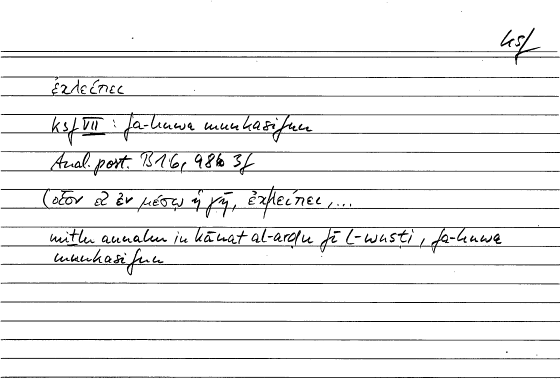 ksf
ἐκλείπει
ksf VII : fa-huwa munkasifun
Anal. post. B16, 98b 3f
(οἷον εἰ ἐν μέσῳ ἡ γῆ, ἐκλείπει, ...
miṯlu annahu in kānat al-arḍu fī l-wusṭi, fa-huwa
munkasifun